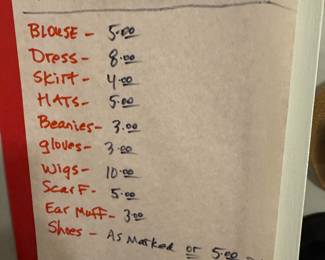 BLOUSE - 5.00
Dress - 8.00
Skirt - 4.00
HATS - 5.00
Beanies - 3.00
gloves - 3.00
Wigs - 10.00
Scarf - 5.00
Ear Muff - 3.00
Shoes - As Marked or 5.00